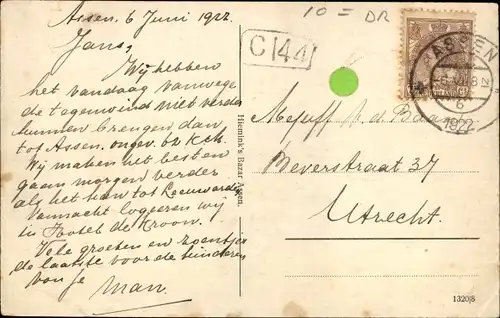 Assen, 6 Juni 1922.
10 = DR
Jans,
C 144
ASSEN
Wij hebben
het vandaag vanwege
de tegenwind niet verder
kunnen brengen dan
tot Assen. ongev. 62 K.M.
Wij maken het besten
gaan morgen verder
als het kan tot Leeuwarden
Vannacht logeeren wij
in Hotel de Kroon.
Vele groeten en zoentjes
de laatste voor de kinderen
van je
Man.
Hiemink's Bazar Assen.
6
1922
Mejuff v. d. Baan
Beverstraat 37
Utrecht.
1320|8